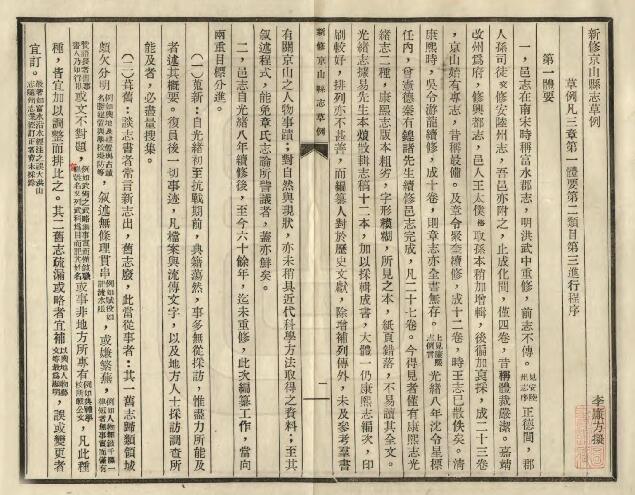 新修京山縣志草例
草例凡三章第一體要第二類目第三進行程序
李廉方擬
第一體要
一，邑志在南宋時稱富水郡志，明洪武中重修，前志不傳。見安陸州志序正德間，郡
人孫司徒交修安陸州志，吾邑亦附之，止成化間，僅四卷，昔稱體裁嚴潔。嘉靖
改州爲府，修興都志，邑人王太僕格取孫本稍加增輯，後徧加裒採，成二十三卷
，京山始有專志，昔稱最備。及章令聚奎續修，成十二卷，時王志已散佚矣。清
康熙時，吳令游龍續修，成十卷，則章志亦全書無存。上見康熙志例言光緒八年沈令星標
任內，曾憲德秦有鍠諸先生續修邑志完成，凡二十七卷。今得見者僅有康熙志光
緒志二種，康熙志版本粗劣，字形模糊，所見之本，紙頁錯落，不易讀其全文。
光緒志據易先生本烺散輯志稿十二本，加以採輯成書，大體一仍康熙志編次，印
刷較好，排列亦不甚善，而編纂人對於歷史文獻，除增補列傳外，未及參考羣書
新修京山縣志草例
一
有關京山之人物事蹟；對自然與現狀，亦未稍具近代科學方法取得之資料；至其
敘述程式，能免章氏志論所譏議者，蓋亦鮮矣。
二，邑志自光緒八年續修後，至今六十餘年，迄未重修，此次編纂工作，當向
兩重目標分進。
（一）葺新：自光緒初至抗戰期前，典籍蕩然，事多無從採訪，惟盡力所能及
者述其概要。復員後一切事迹，凡檔案與流傳文字，以及地方人士採訪調查所
能及者，必盡量搜集。
（二）葺舊：談志書者常言新志出，舊志廢，此當從事者：其一舊志歸類領域
頗欠分明，敘述無條理貫串，或嫌繁蕪，
或文不對題，或事非地方所專有，凡此種
種，皆宜加以調整而排比之。其二舊志疏漏或略者宜補，誤或變更者
宜訂。